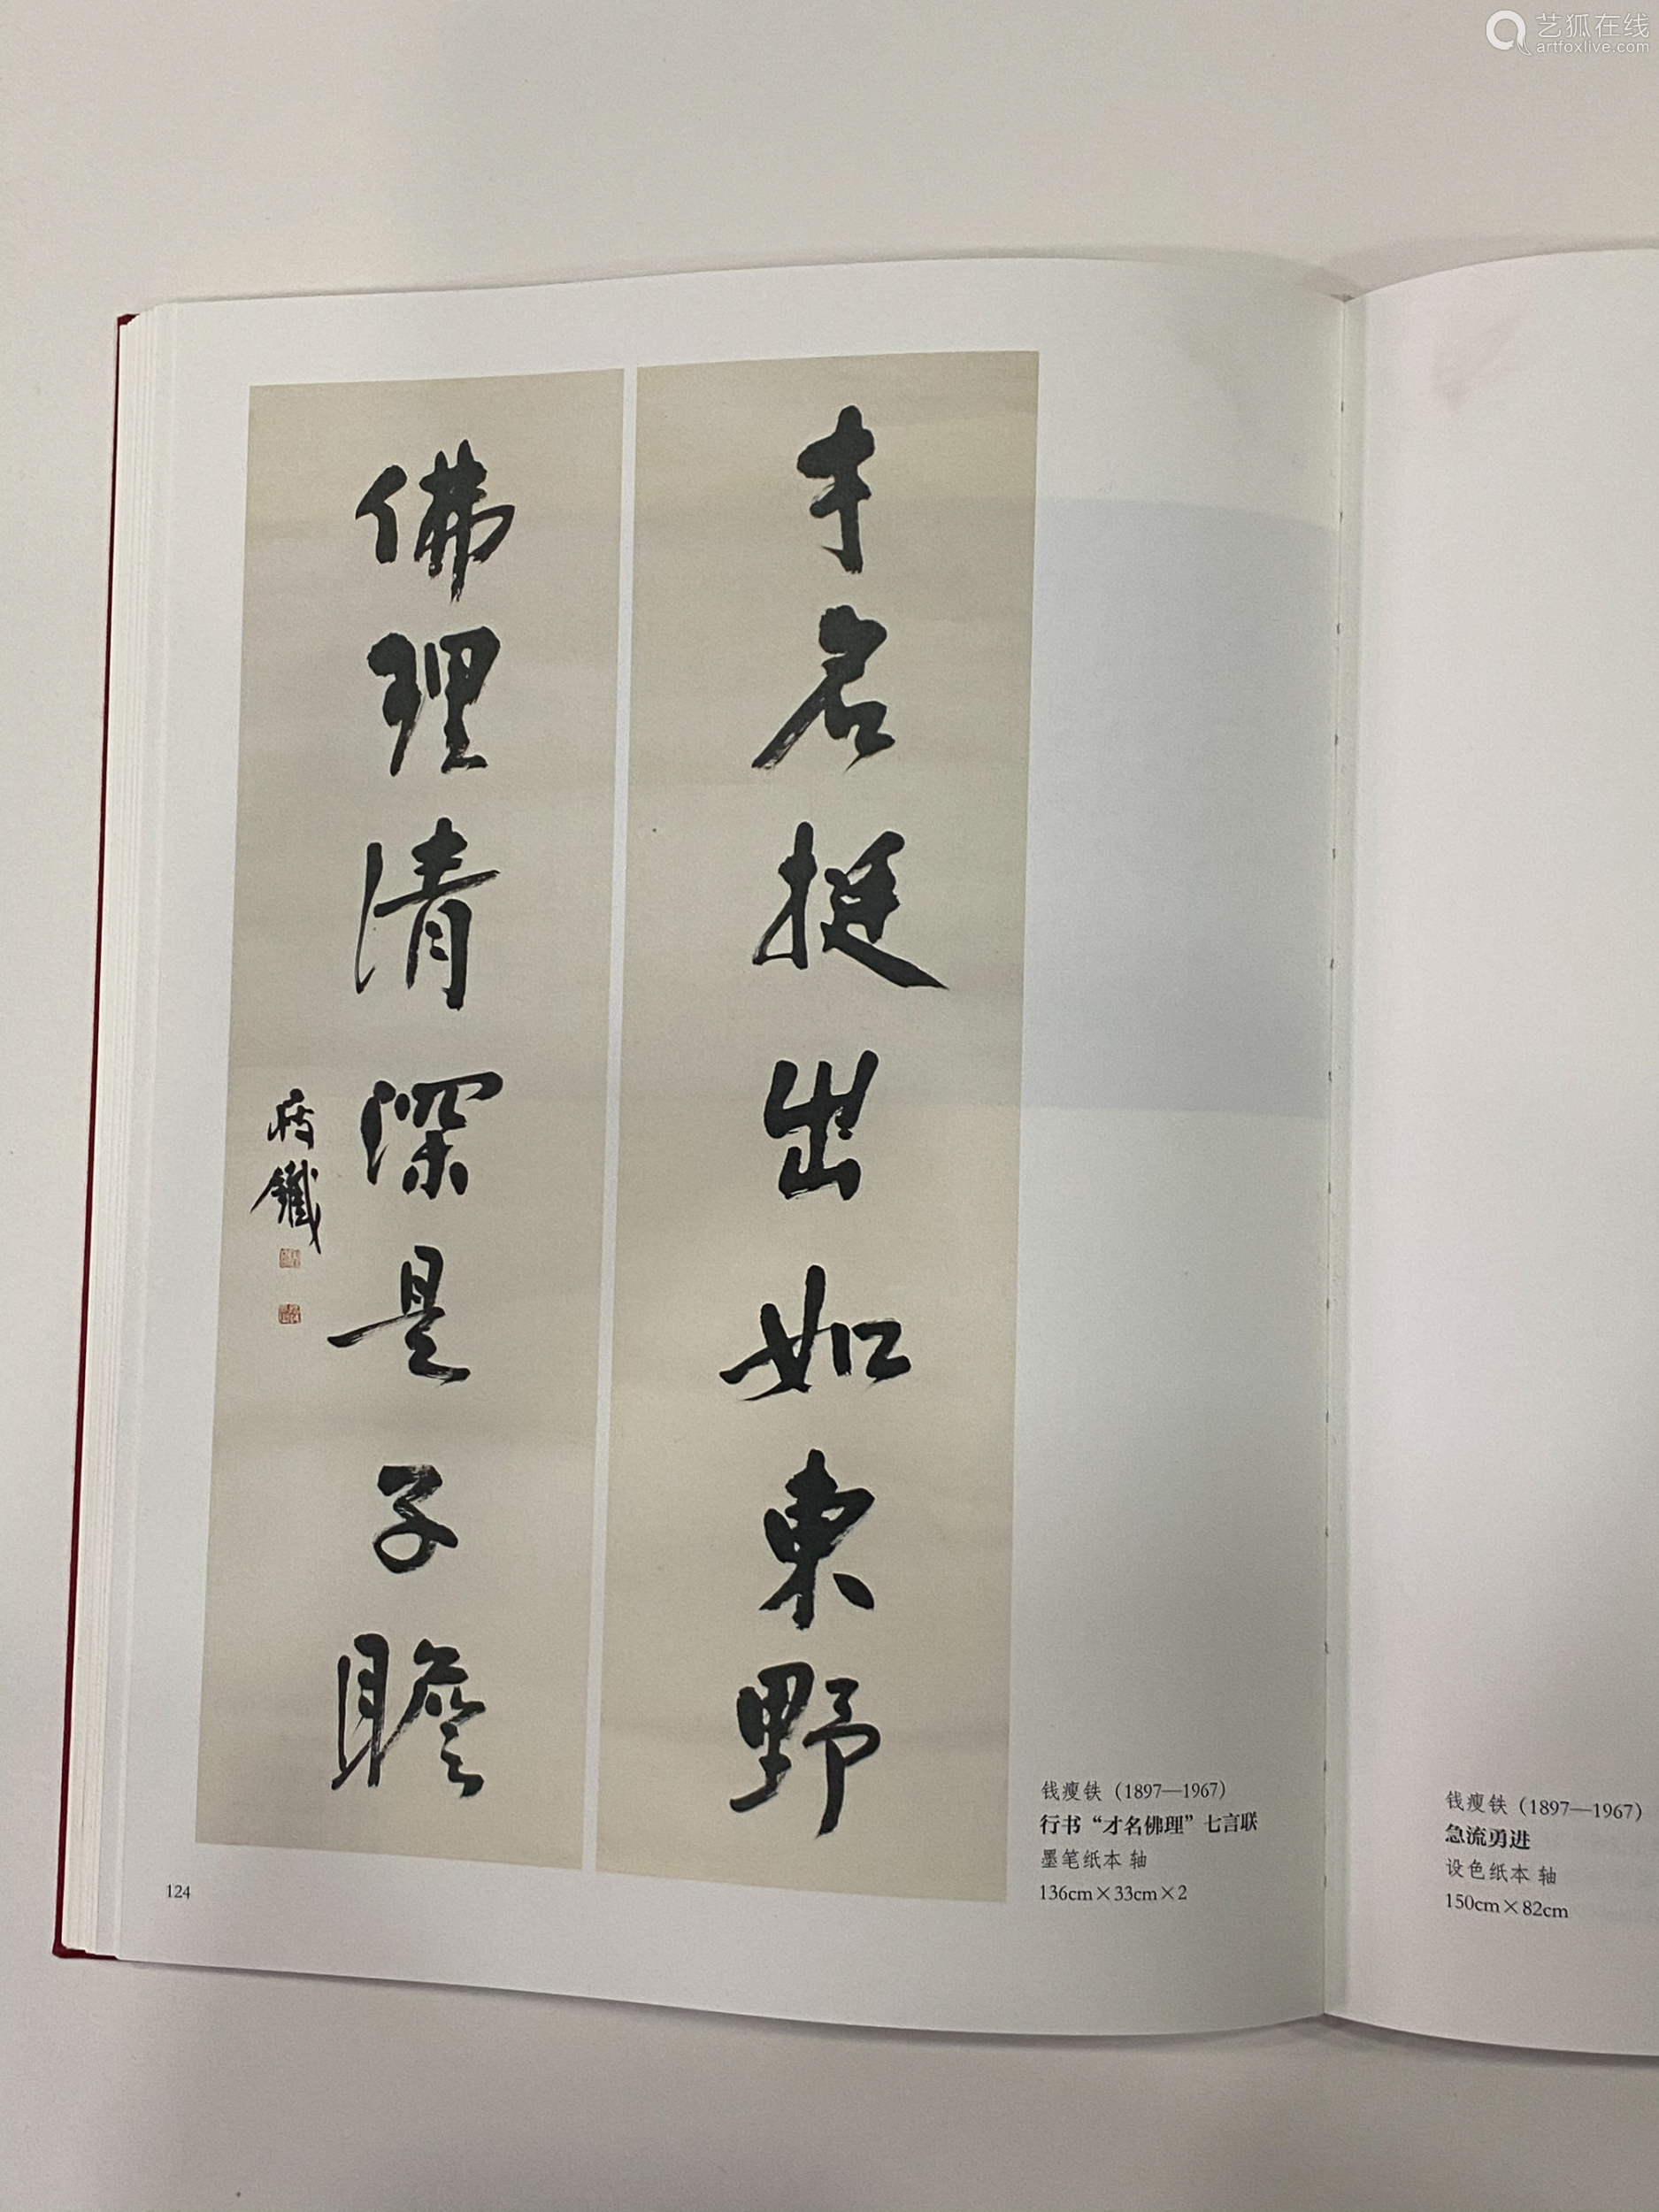 艺狐在线
artfoxlive.com
才名挺出如東野
佛理清深是子瞻
瘦鐵
钱瘦铁（1897—1967）
行书“才名佛理”七言联
墨笔纸本 轴
136cm×33cm×2
124
钱瘦铁（1897—1967）
急流勇进
设色纸本 轴
150cm×82cm